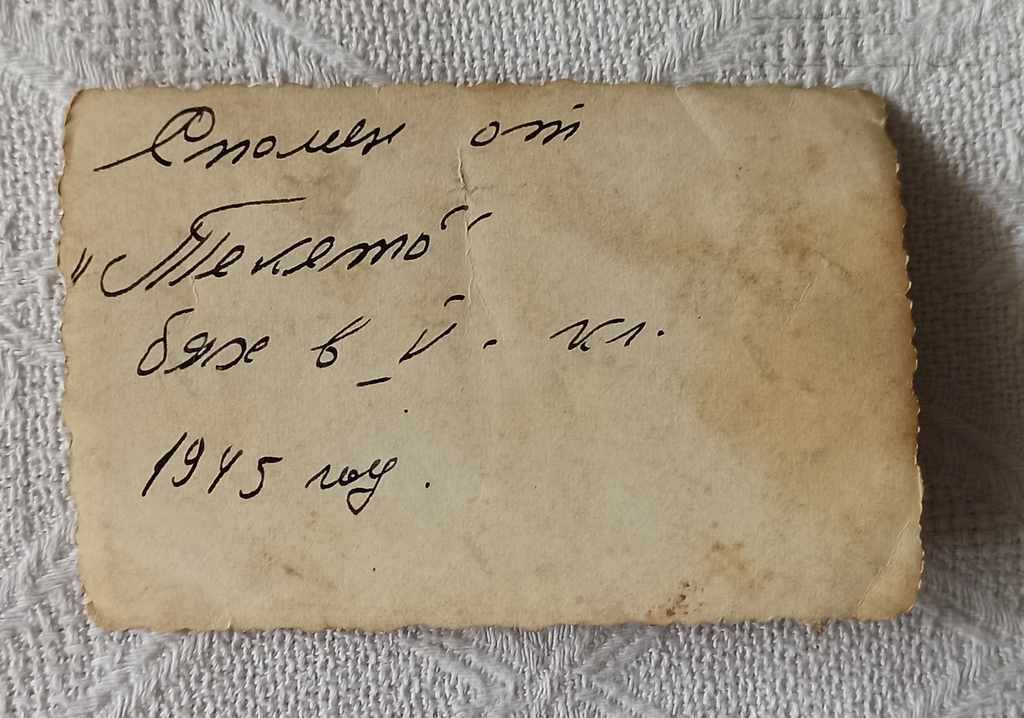 Спомен от
"Текето"
бях в V. кл.
1945 год.